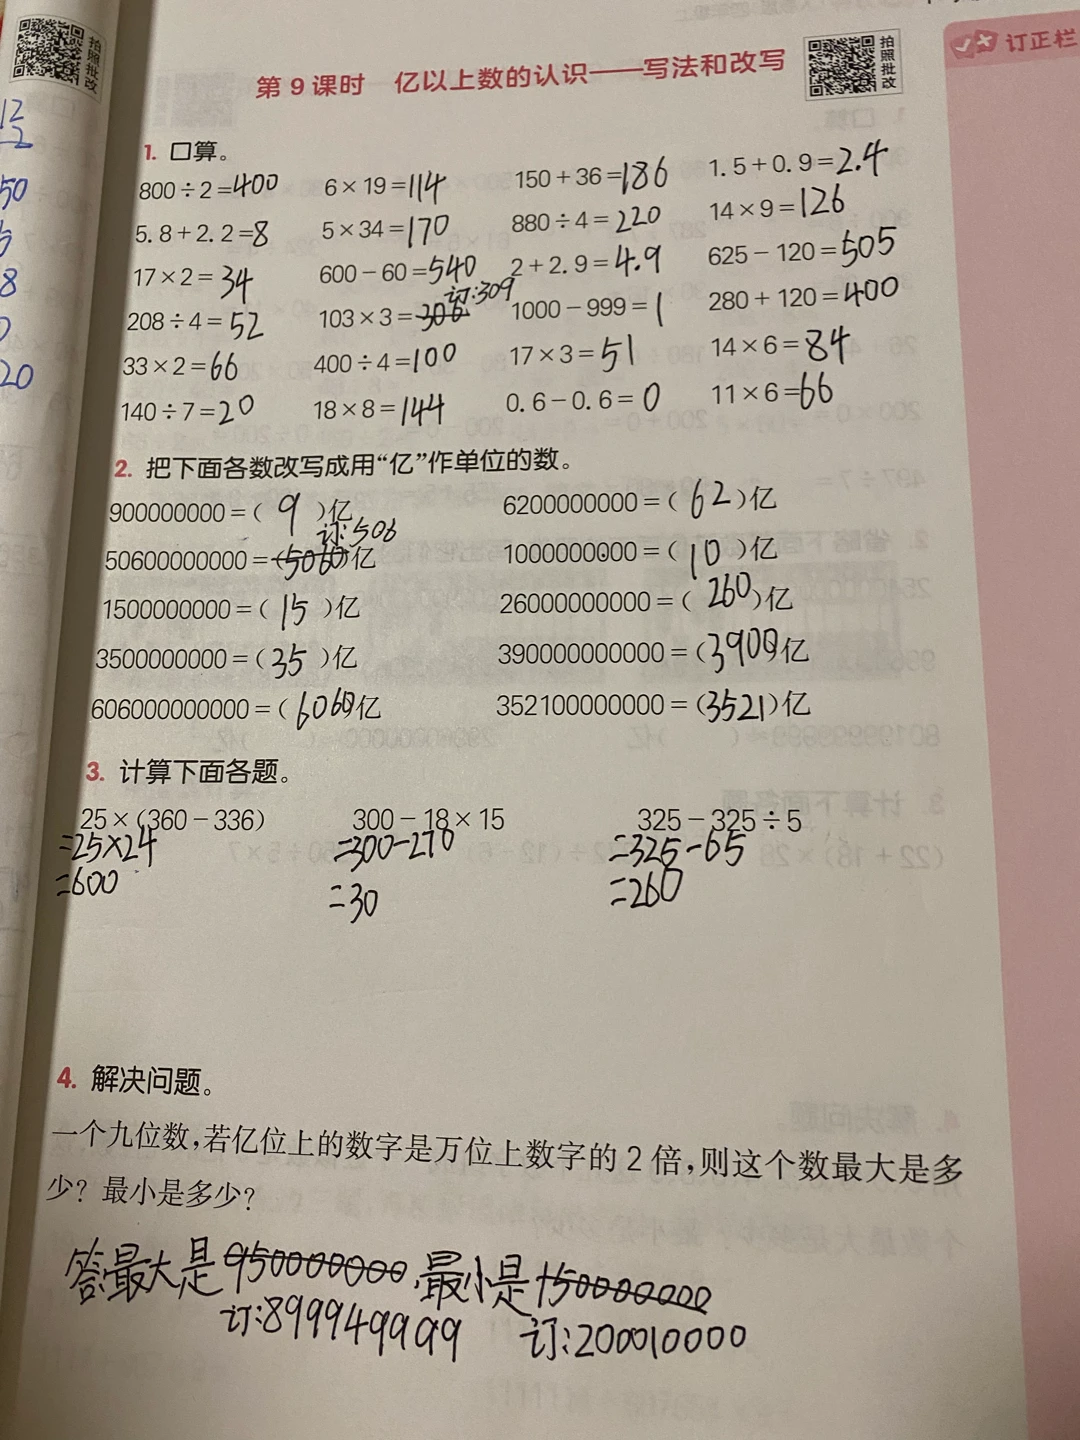 拍照批改
第9课时 亿以上数的认识——写法和改写
拍照批改
订正栏
12
2
50
8
20
1. 口算。
800÷2=400 6×19=114 150+36=186 1.5+0.9=2.4
5.8+2.2=8 5×34=170 880÷4=220 14×9=126
17×2=34 600-60=540 2+2.9=4.9 625-120=505
订:309
208÷4=52 103×3=306 1000-999=1 280+120=400
33×2=66 400÷4=100 17×3=51 14×6=84
140÷7=20 18×8=144 0.6-0.6=0 11×6=66
2. 把下面各数改写成用“亿”作单位的数。
900000000=(9)亿 6200000000=(62)亿
订:506
50600000000=(5060)亿 1000000000=(10)亿
1500000000=(15)亿 26000000000=(260)亿
3500000000=(35)亿 390000000000=(3900)亿
606000000000=(6060)亿 352100000000=(3521)亿
3. 计算下面各题。
25×(360-336) 300-18×15 325-325÷5
=25×24 =300-270 =325-65
=600 =30 =260
4. 解决问题。
一个九位数,若亿位上的数字是万位上数字的2倍,则这个数最大是多
少?最小是多少?
答:最大是950000000,最小是150000000
订:899949999 订:200010000